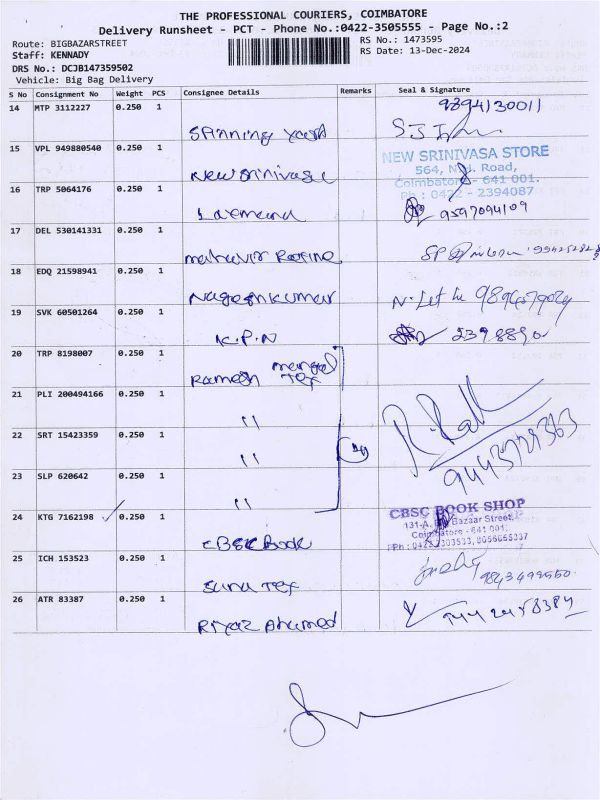 THE PROFESSIONAL COURIERS, COIMBATORE
Delivery Runsheet - PCT - Phone No.:0422-3505555 - Page No.:2
Route: BIGBAZARSTREET
Staff: KENNADY
DRS No.: DCJB147359502
Vehicle: Big Bag Delivery
RS No.: 1473595
RS Date: 13-Dec-2024
S No Consignment No Weight PCS Consignee Details Remarks Seal & Signature
14 MTP 3112227 0.250 1 Spinning 9894130011
15 VPL 949880540 0.250 1 New Srinivasa
NEW SRINIVASA STORE
564, N.H. Road,
Coimbatore - 641 001.
Ph : 0422 - 2394087
16 TRP 5064176 0.250 1 9597094109
17 DEL 530141331 0.250 1 mahavir
18 EDQ 21598941 0.250 1 Nageshkumar
19 SVK 60501264 0.250 1 K.P.N
20 TRP 8198007 0.250 1 Ramesh Tex
21 PLI 200494166 0.250 1 "
22 SRT 15423359 0.250 1 "
23 SLP 620642 0.250 1 "
9443729363
24 KTG 7162198 0.250 1 CBSC Book
CBSC BOOK SHOP
131-A, Big Bazaar Street,
Coimbatore - 641 001.
25 ICH 153523 0.250 1 Tex
26 ATR 83387 0.250 1 Riyaz Ahamed